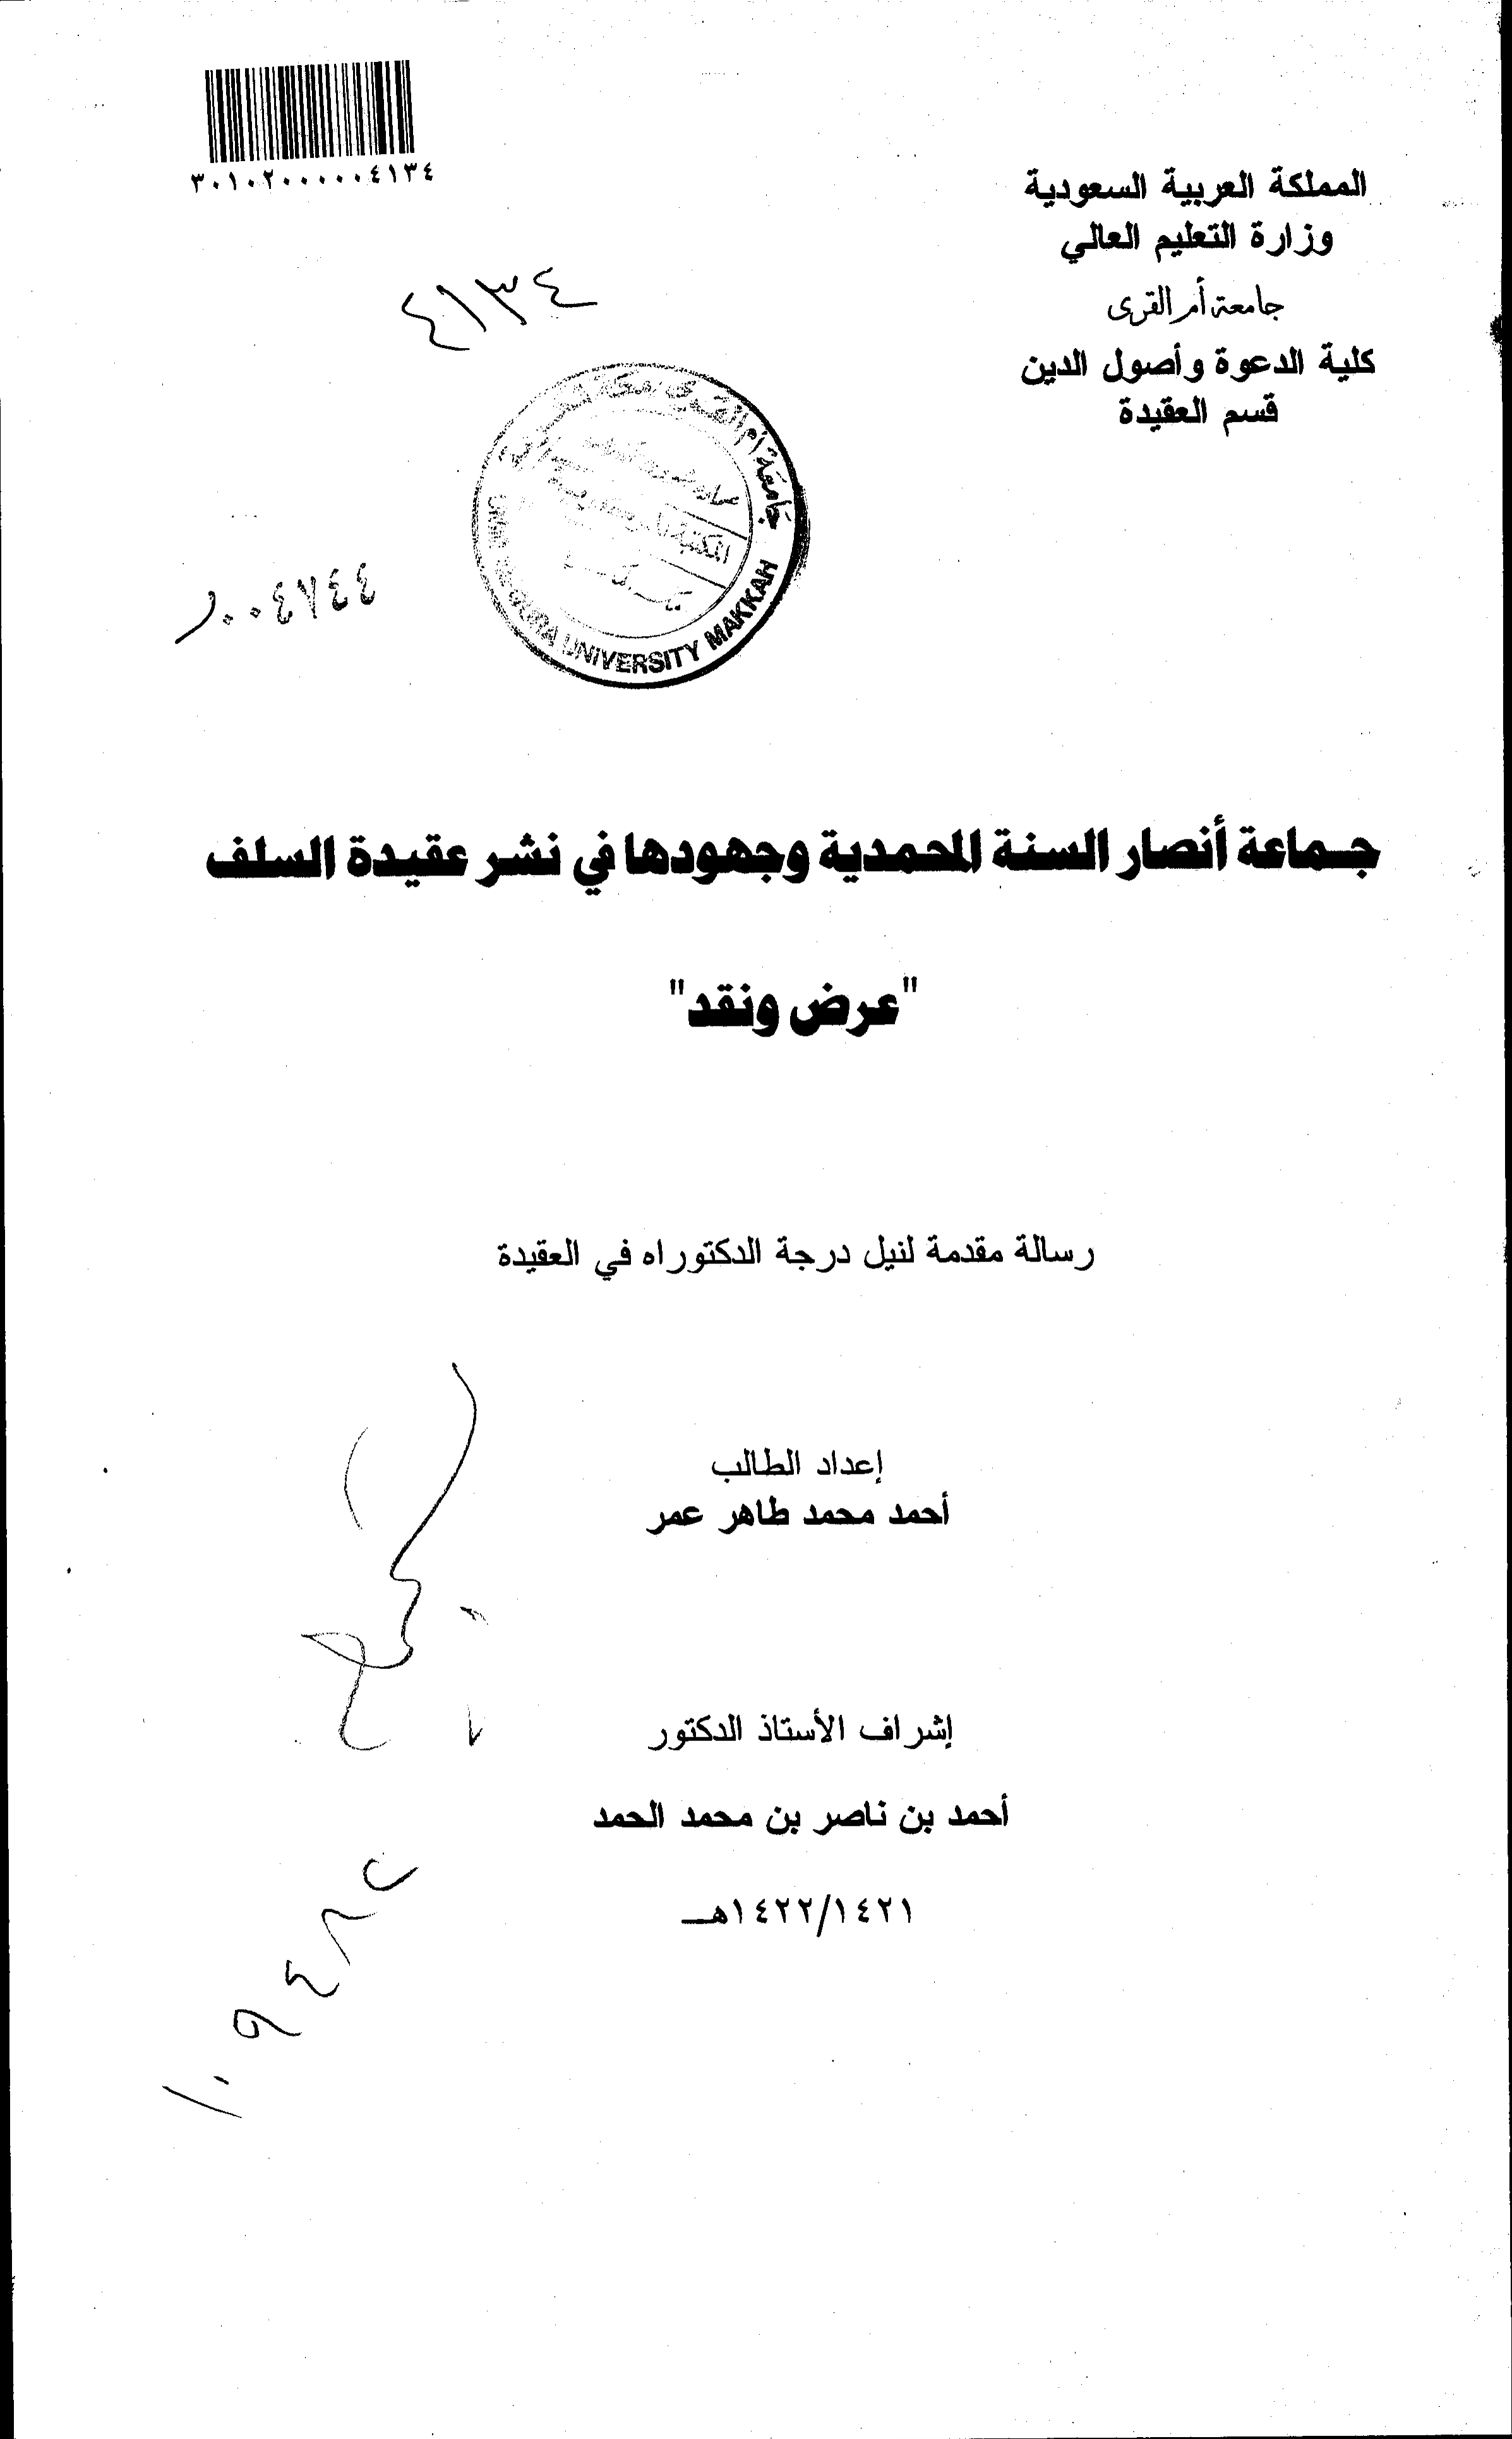 ٣٠١٠٢٠٠٠٠٠٤١٣٤
المملكة العربية السعودية
وزارة التعليم العالي
جامعة أم القرى
كلية الدعوة وأصول الدين
قسم العقيدة
٤١٣٤
جامعة أم القرى بمكة
UNIVERSITY MAKKAH
٠٠٤٧٤٤
جـماعة أنصار السنة المحمدية وجهودها في نشر عقيدة السلف
"عرض ونقد"
رسالة مقدمة لنيل درجة الدكتوراه في العقيدة
إعداد الطالب
أحمد محمد طاهر عمر
إشراف الأستاذ الدكتور
أحمد بن ناصر بن محمد الحمد
١٤٢٢/١٤٢١هــ